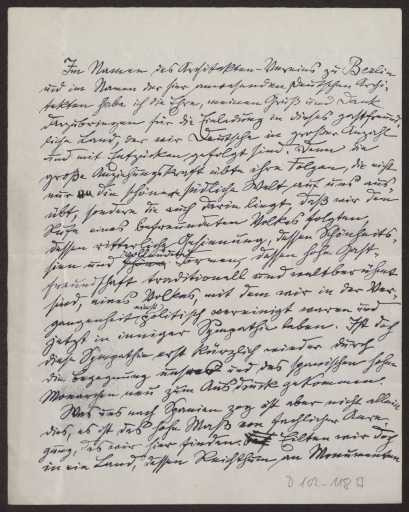 Im Namen des Architekten-Vereins zu Berlin
und im Namen der hier anwesenden deutschen Archi-
tekten habe ich die Ehre, meinen Gruß und Dank
darzubringen für die Einladung in dieses gastfreund-
liche Land, der wir Deutsche in großer Anzahl
und mit Entzücken gefolgt sind. Denn die
große Anziehungskraft übte ihre Folgen, die nicht
nur die schöne südliche Welt auf uns aus-
übt, sondern die auch darin liegt, daß wir dem
Rufe eines befreundeten Volkes folgten,
dessen ritterliche Gesinnung, dessen Schönheits-
sinn und Formen, dessen hohe Gast-
freundschaft traditionell und weltberühmt
sind, eines Volkes, mit dem wir in der Ver-
gangenheit politisch vereinigt waren und
jetzt in inniger Sympathie leben. Ist doch
diese Sympathie erst kürzlich wieder durch
die Begegnung unseres und des spanischen hohen
Monarchen neu zum Ausdruck gekommen.
Was uns nach Spanien zog ist aber nicht allein
dies, es ist das hohe Maß von fachlicher Anre-
gung, das wir hier finden. Eilten wir doch
in ein Land, dessen Reichthum an Monumenten
D 102-118